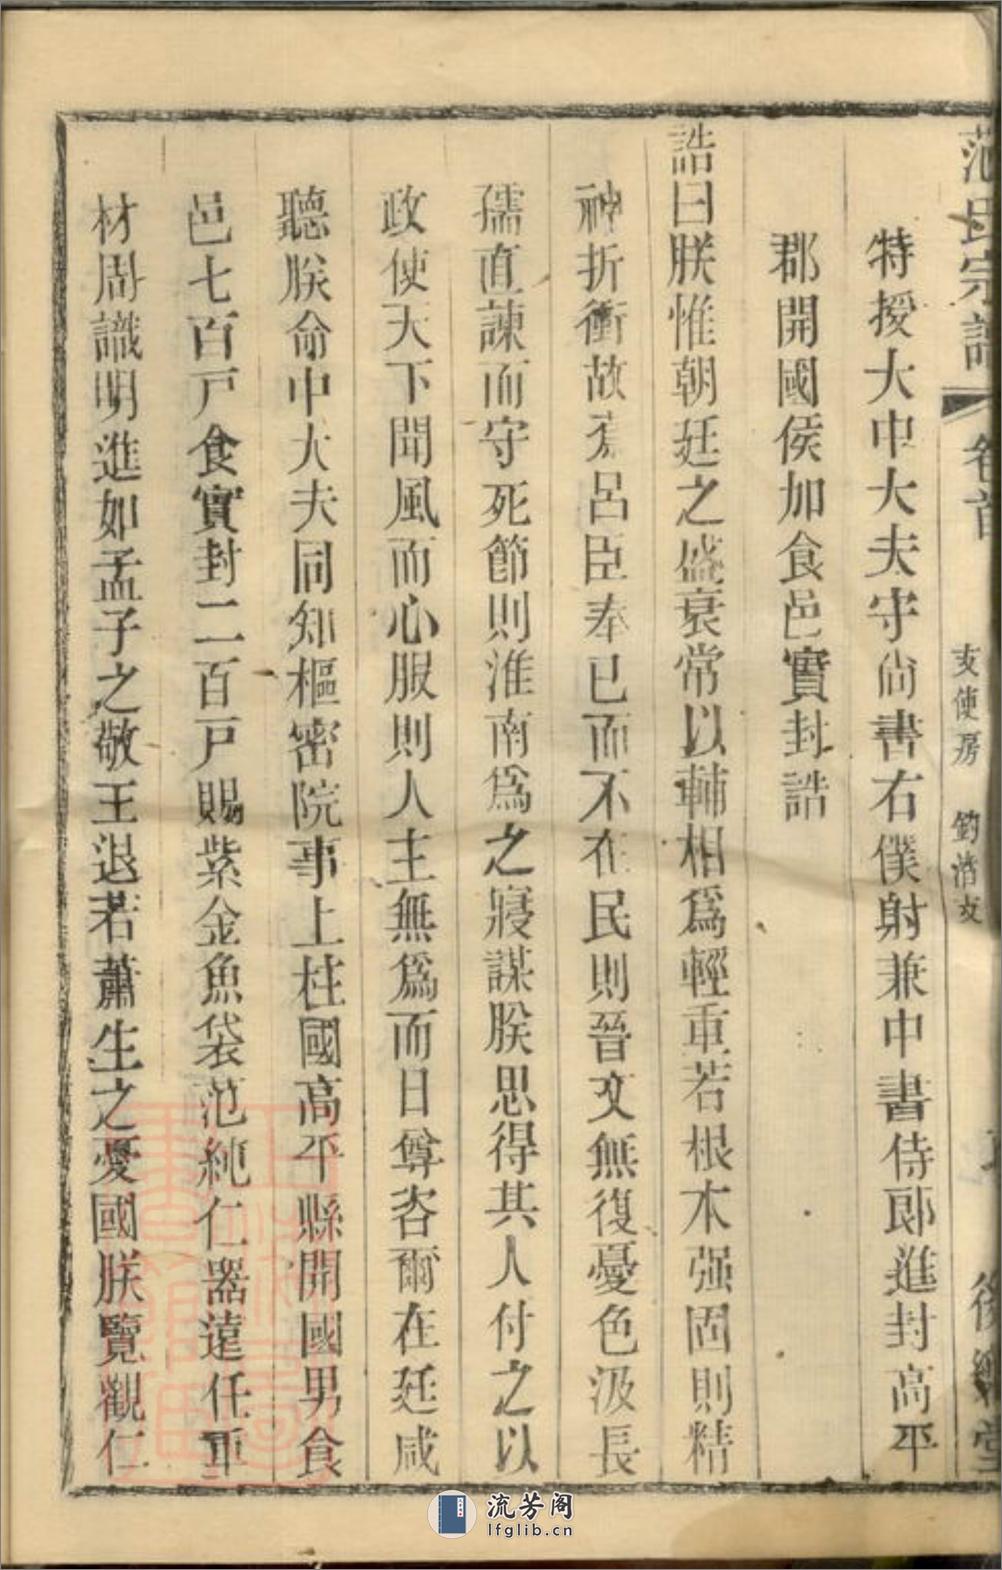 范氏宗譜 卷首 支使房 後樂堂
特授大中大夫守尚書右僕射兼中書侍郎進封高平
郡開國侯加食邑實封誥
誥曰朕惟朝廷之盛衰常以輔相為輕重若根木强固則精
神折衝故蒍呂臣奉已而不在民則晉文無復憂色汲長
孺直諫而守死節則淮南為之寢謀朕思得其人付之以
政使天下聞風而心服則人主無為而日尊咨爾在廷咸
聽朕命中大夫同知樞密院事上柱國高平縣開國男食
邑七百戸食實封二百戸賜紫金魚袋范純仁器遠任重
材周識明進如孟子之敬王退若蕭生之憂國朕覽觀仁
流芳阁
lfglib.cn